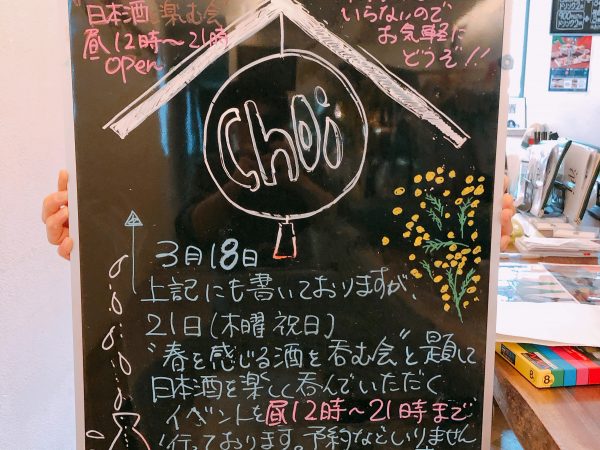 日本酒楽む会
昼12時〜21時
Open
いらないので
お気軽に
どうぞ!!
Choi
3月18日
上記にも書いておりますが、
21日(木曜祝日)
"春を感じる酒を呑む会"と題して
日本酒を楽しく呑んでいただく
イベントを昼12時〜21時まで
行っております。予約などいりません